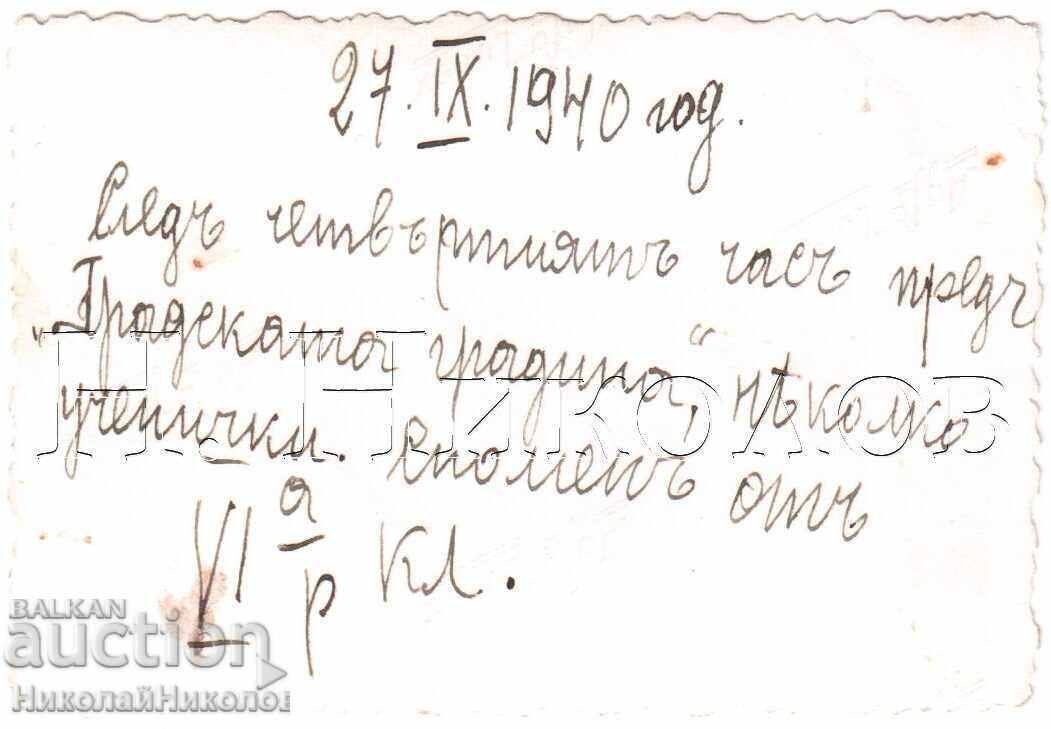 27.IX.1940 год.
Следъ четвъртиятъ часъ предъ
„Градската градина“, нѣколко
ученички. Споменъ отъ
VI а/р кл.
Н. Николов
BALKAN
auction
НиколайНиколов